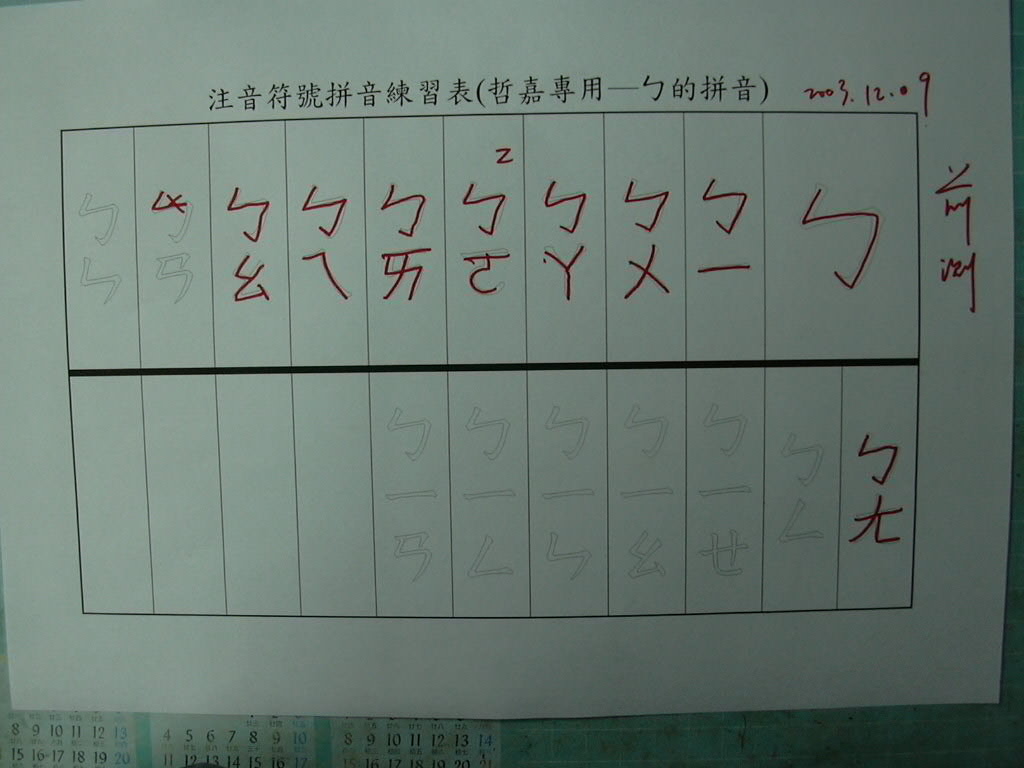 注音符號拼音練習表(哲嘉專用—ㄅ的拼音)
2003.12.09
前測
ㄅ
ㄅㄧ
ㄅㄨ
ㄅㄚ
2
ㄅㄛ
ㄅㄞ
ㄅㄟ
ㄅㄠ
ㄅㄢ
ㄅㄣ
ㄅㄤ
ㄅㄥ
ㄅㄧㄝ
ㄅㄧㄠ
ㄅㄧㄣ
ㄅㄧㄥ
ㄅㄧㄢ
8 9 10 11 12 13
15 16 17 18 19 20
4 5 6 7 8 9 10
11 12 13 14 15 16 17
8 9 10 11 12 13 14
15 16 17 18 19 20 21